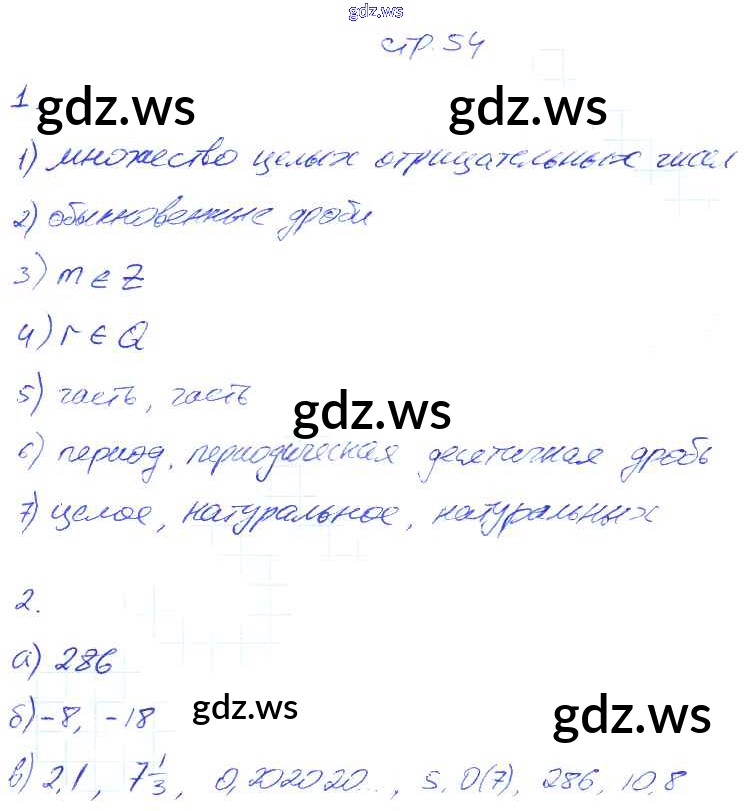 gdz.ws
стр. 54
1.
gdz.ws gdz.ws
1) множество целых отрицательных чисел
2) обыкновенные дроби
3) m ∈ Z
4) r ∈ Q
5) часть, часть
gdz.ws
6) период, периодическая десятичная дробь
7) целое, натуральное, натуральных
2.
а) 286
б) -8, -18
gdz.ws gdz.ws
в) 2,1, 7 1/3, 0,202020..., 5,0(7), 286, 10,8